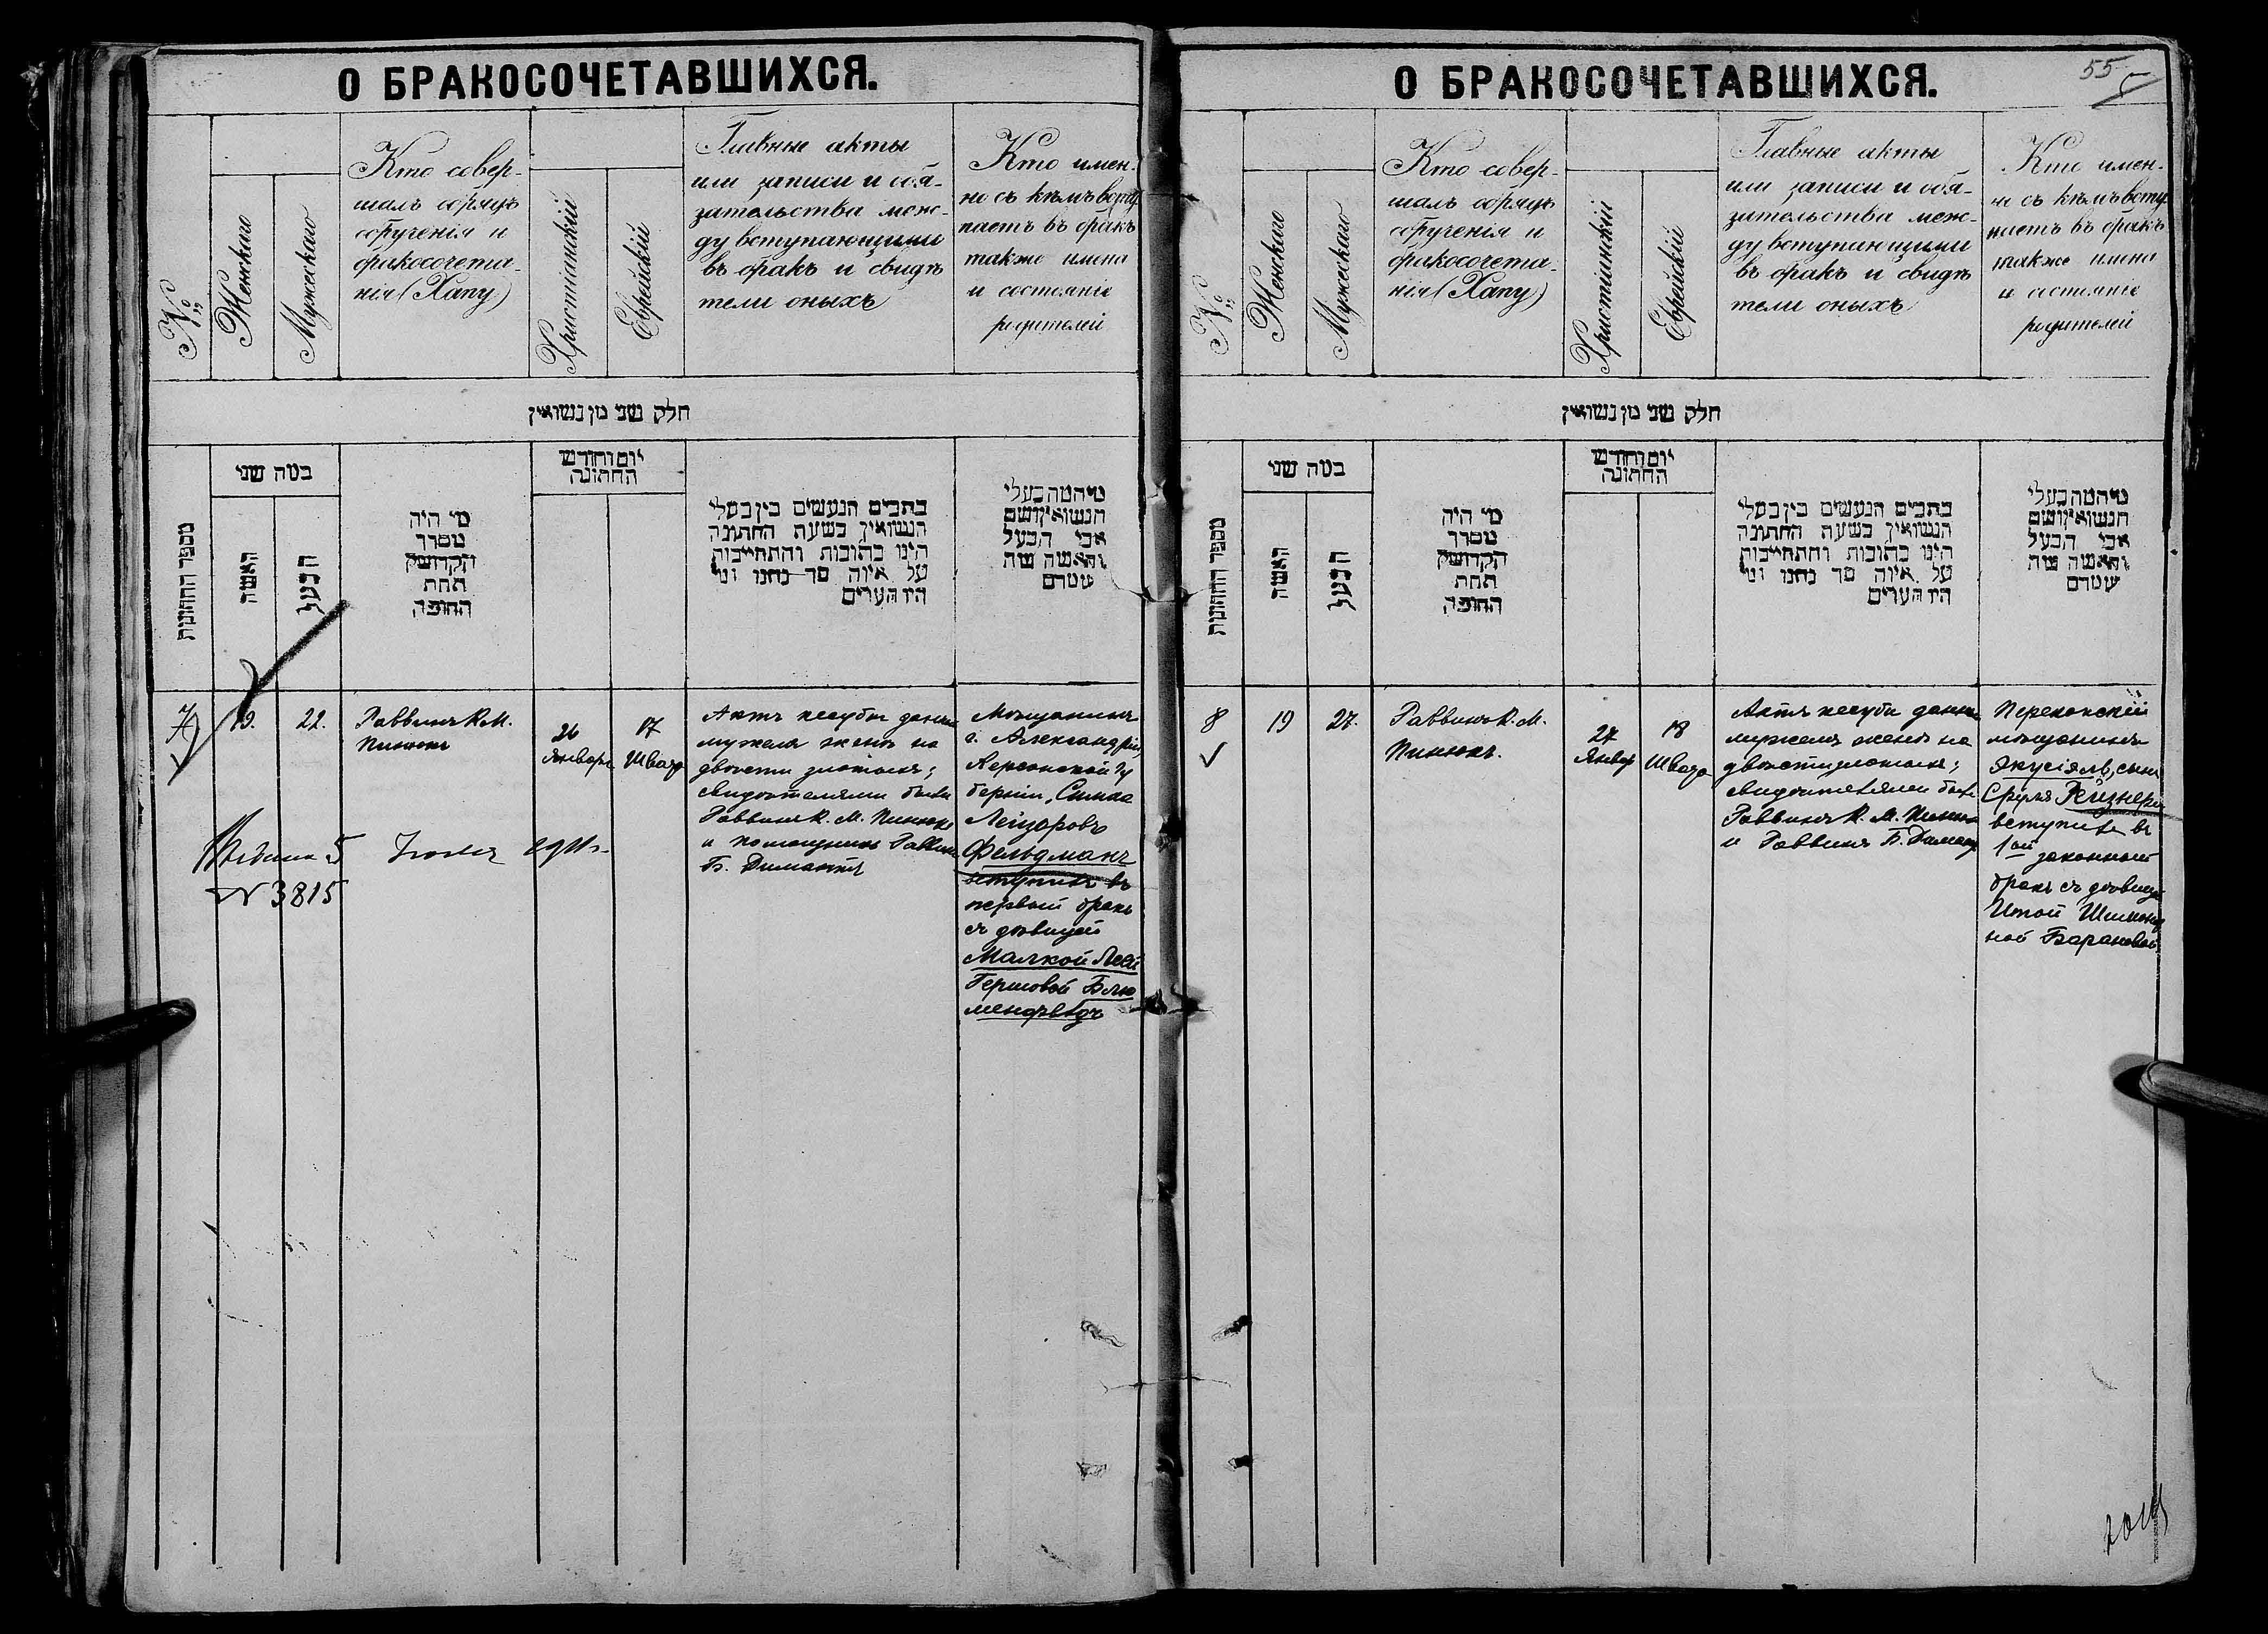 О БРАКОСОЧЕТАВШИХСЯ.
№
Женскаго
Мужескаго
Кто совер-
шалъ обрядъ
обрученія и
бракосочета-
нія (Хапу)
Христіанскій
Еврейскій
Главные акты
или записи и обя-
зательства меж-
ду вступающими
въ бракъ и свидѣ
тели оныхъ
Кто имен-
но съ кѣмъ всту
паетъ въ бракъ
также имена
и состояніе
родителей
חלק שני מן נשואין
מספר החתונות
כמה שני
האשה
הבעל
מי היה
מסדר
הקדושין
תחת
החופה
יום וחודש
החתונה
כתבים הנעשים בין בעלי
הנשואין בשעת החתונה
היינו כתובות והתחייבות
על איזה סך נתנו ומי
היו העדים
מי המה בעלי
הנשואין ושם
אבי הבעל
והאשה
7
19.
22.
Раввинъ К. М.
Пинюкъ
26
Январь
17
Швата
Актъ кесубы данный
мужемъ женѣ на
двѣсти злотыхъ;
свидѣтелями были
Раввинъ К. М. Пинюкъ
и помощникъ Раввина
Б. Димантъ
Мѣщанинъ
г. Александріи
Херсонской гу
берніи, Симха
Лейзеровъ
Фельдманъ
вступилъ въ
первый бракъ
съ дѣвицей
Малкой Леей
Гершовой Блю
менфельдъ
5
1911 г.
№ 3815
О БРАКОСОЧЕТАВШИХСЯ.
55
№
Женскаго
Мужескаго
Кто совер-
шалъ обрядъ
обрученія и
бракосочета-
нія (Хапу)
Христіанскій
Еврейскій
Главные акты
или записи и обя-
зательства меж-
ду вступающими
въ бракъ и свидѣ
тели оныхъ
Кто имен-
но съ кѣмъ всту
паетъ въ бракъ
также имена
и состояніе
родителей
חלק שני מן נשואין
מספר החתונות
כמה שני
האשה
הבעל
מי היה
מסדר
הקדושין
תחת
החופה
יום וחודש
החתונה
כתבים הנעשים בין בעלי
הנשואין בשעת החתונה
היינו כתובות והתחייבות
על איזה סך נתנו ומי
היו העדים
מי המה בעלי
הנשואין ושם
אבי הבעל
והאשה
8
19
27.
Раввинъ К. М.
Пинюкъ.
27
Январ
18
Швата
Актъ кесубы данный
мужемъ женѣ на
двѣсти злотыхъ;
свидѣтелями были
Раввинъ К. М. Пинюкъ
и Раввинъ Б. Димантъ
Перекопскій
мѣщанинъ
Якусіель, сынъ
Сруля Рейзнеръ
вступилъ въ
1ой законный
бракъ съ дѣвицей
Итой Шимоно
ной Барановой